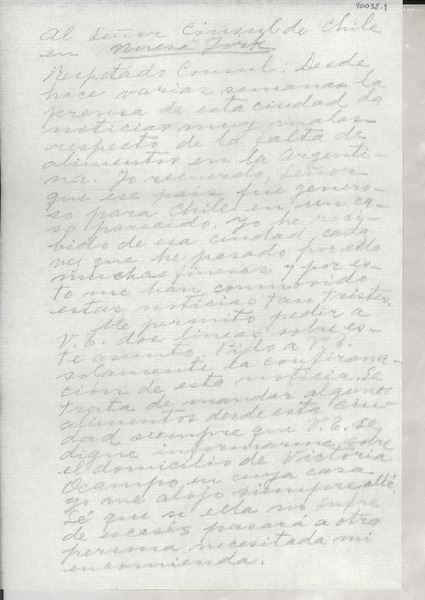 10038.1
Al Señor Cónsul de Chile
en Nueva York
Respetado Consul: Desde
hace varias semanas la
prensa de esta ciudad da
noticias muy malas
respecto de la falta de
alimentos en la Argenti-
na. Yo recuerdo, Señor
que ese país fue genero-
so para Chile en un ca-
so parecido. Yo he reci-
bido de esa ciudad, cada
vez que he pasado por ella
muchas finesas y por es-
to me han conmovido
estas noticias tan tristes.
Me permito pedir a
V.E. dos líneas sobre es-
te asunto. Pido a V.E.
solamente la confirma-
ción de esta noticia. Se
trata de mandar algunos
alimentos desde esta ciu-
dad siempre que V.E. se
digne informarme sobre
el domicilio de Victoria
Ocampo en cuya casa
yo me alojo siempre allá.
Sé que si ella no sufre
de escasés pasará a otra
persona necesitada mi
encomienda.